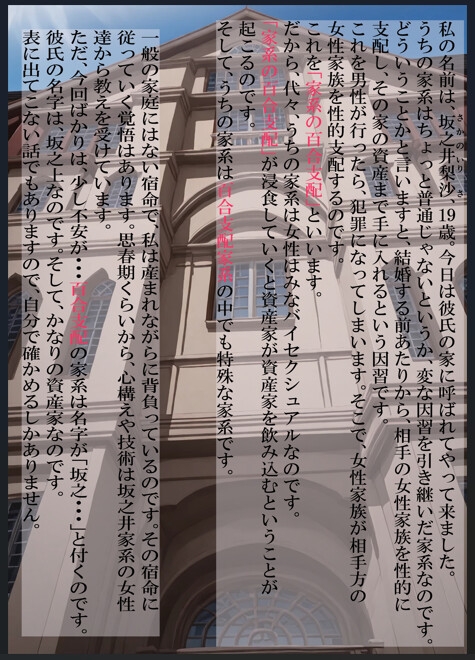 私の名前は、坂之井梨沙　19歳。今日は彼氏の家に呼ばれてやって来ました。
さかのいりさ
うちの家系はちょっと普通じゃないというか、変な因習を引き継いだ家系なのです。
どういうことかと言いますと、結婚する前あたりから、相手の女性家族を性的に
支配し、その家の資産まで手に入れるという因習です。
これを男性が行ったら、犯罪になってしまいます。そこで、女性家族が相手方の
女性家族を性的支配するのです。
これを「家系の百合支配」といいます。
だから、代々、うちの家系は女性はみなバイセクシュアルなのです。
「家系の百合支配」が浸食していくと資産家が資産家を飲み込むということが
起こるのです。
そして、うちの家系は百合支配家系の中でも特殊な家系です。
一般の家庭にはない宿命で、私は産まれながらに背負っているのです。その宿命に
従っていく覚悟はあります。思春期くらいから、心構えや技術は坂之井家系の女性
達から教えを受けています。
ただ、今回ばかりは、少し不安が・・・百合支配の家系は名字が「坂之・・・」と付くのです。
彼氏の名字は、坂之上なのです。そして、かなりの資産家なのです。
表に出てこない話でもありますので、自分で確かめるしかありません。